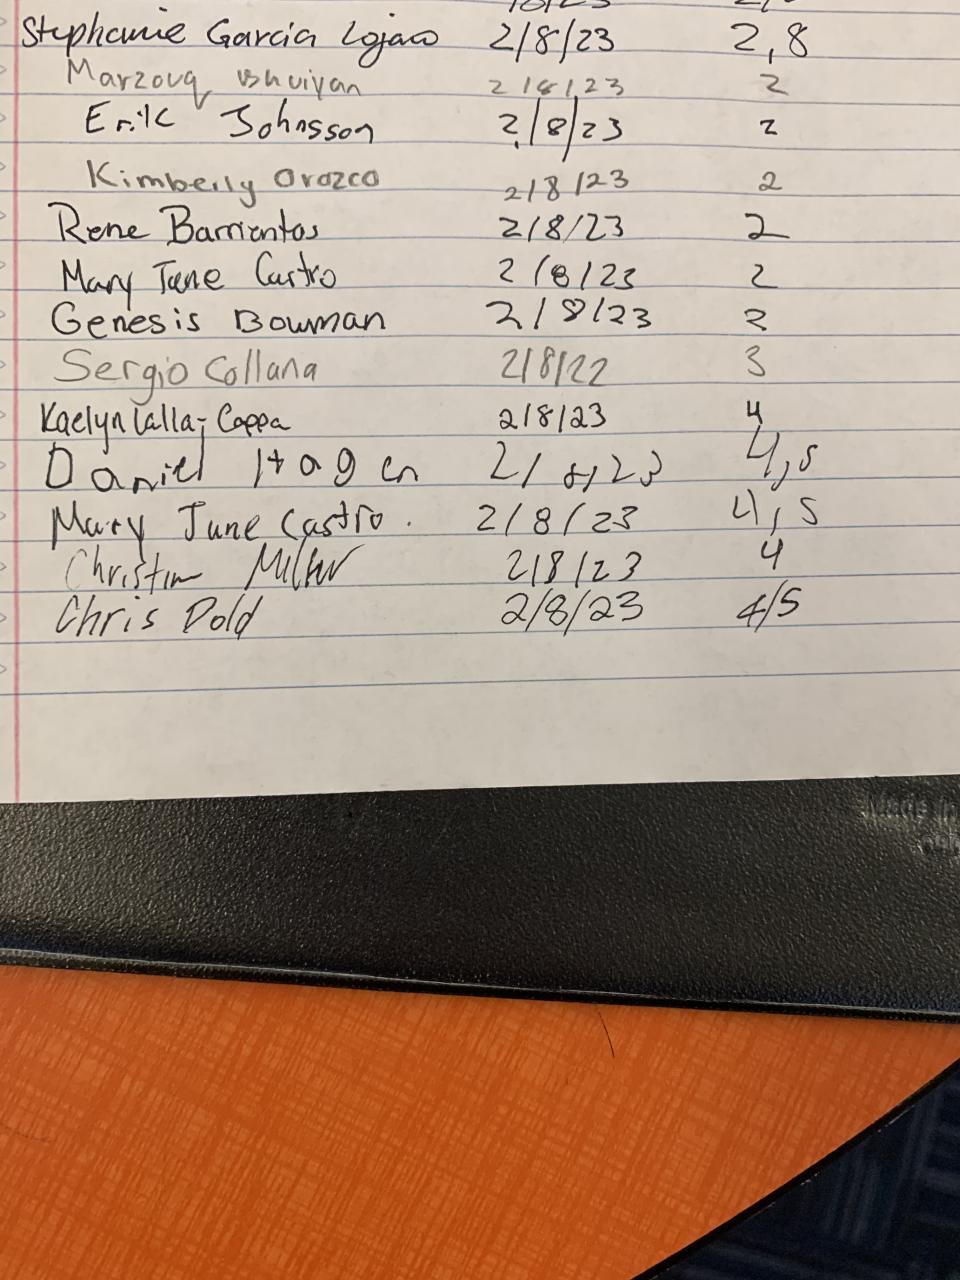 Stephanie Garcia Lojano 2/8/23 2,8
Marzouq Bhuiyan 2/8/23 2
Erik Johnsson 2/8/23 2
Kimberly Orozco 2/8/23 2
Rene Barrientos 2/8/23 2
Mary June Castro 2/8/23 2
Genesis Bowman 2/8/23 2
Sergio Collana 2/8/22 3
Kaelyn Lalla-Coppa 2/8/23 4
Daniel Hagen 2/8/23 4,5
Mary June Castro. 2/8/23 4,5
2/8/23 4
Chris Dold 2/8/23 4/5
Made in